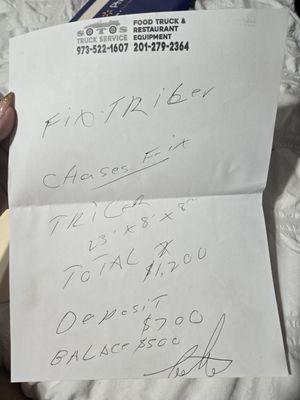 SOTOS
TRUCK SERVICE
FOOD TRUCK &
RESTAURANT
EQUIPMENT
973-522-1607 201-279-2364
Fix-TRiber
CHases Fix
TRiLER
23' X 8' X 8"
TOTAL
$1,200
DePosiT
$700
BALACe $500